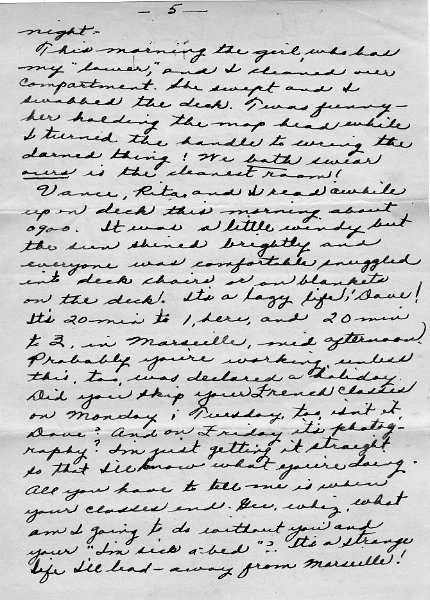 — 5 —
night.
This morning the girl, who has
my "lower," and I cleaned our
compartment. She swept and I
swabbed the deck. Twas funny—
her holding the mop head while
I turned the handle to wring the
darned thing! We both swear
ours is the cleanest room!
Vance, Rita, and I read awhile
up on deck this morning about
0900. It was a little windy but
the sun shined brightly and
everyone was comfortable snuggled
into deck chairs or on blankets
on the deck. It's a lazy life, Dave!
It's 20 min to 1, here, and 20 min
to 3, in Marseille, mid afternoon.
Probably you're working, unless
this, too, was declared a holiday.
Did you skip your French classes
on Monday; Tuesday, too, isn't it,
Dave? And on Friday it's photog-
raphy? I'm just getting it straight
so that I'll know what you're doing.
All you have to tell me is when
your classes end. Gee, whiz, what
am I going to do without you and
your "I'm sick a-bed"? It's a strange
life I'll lead—away from Marseille!